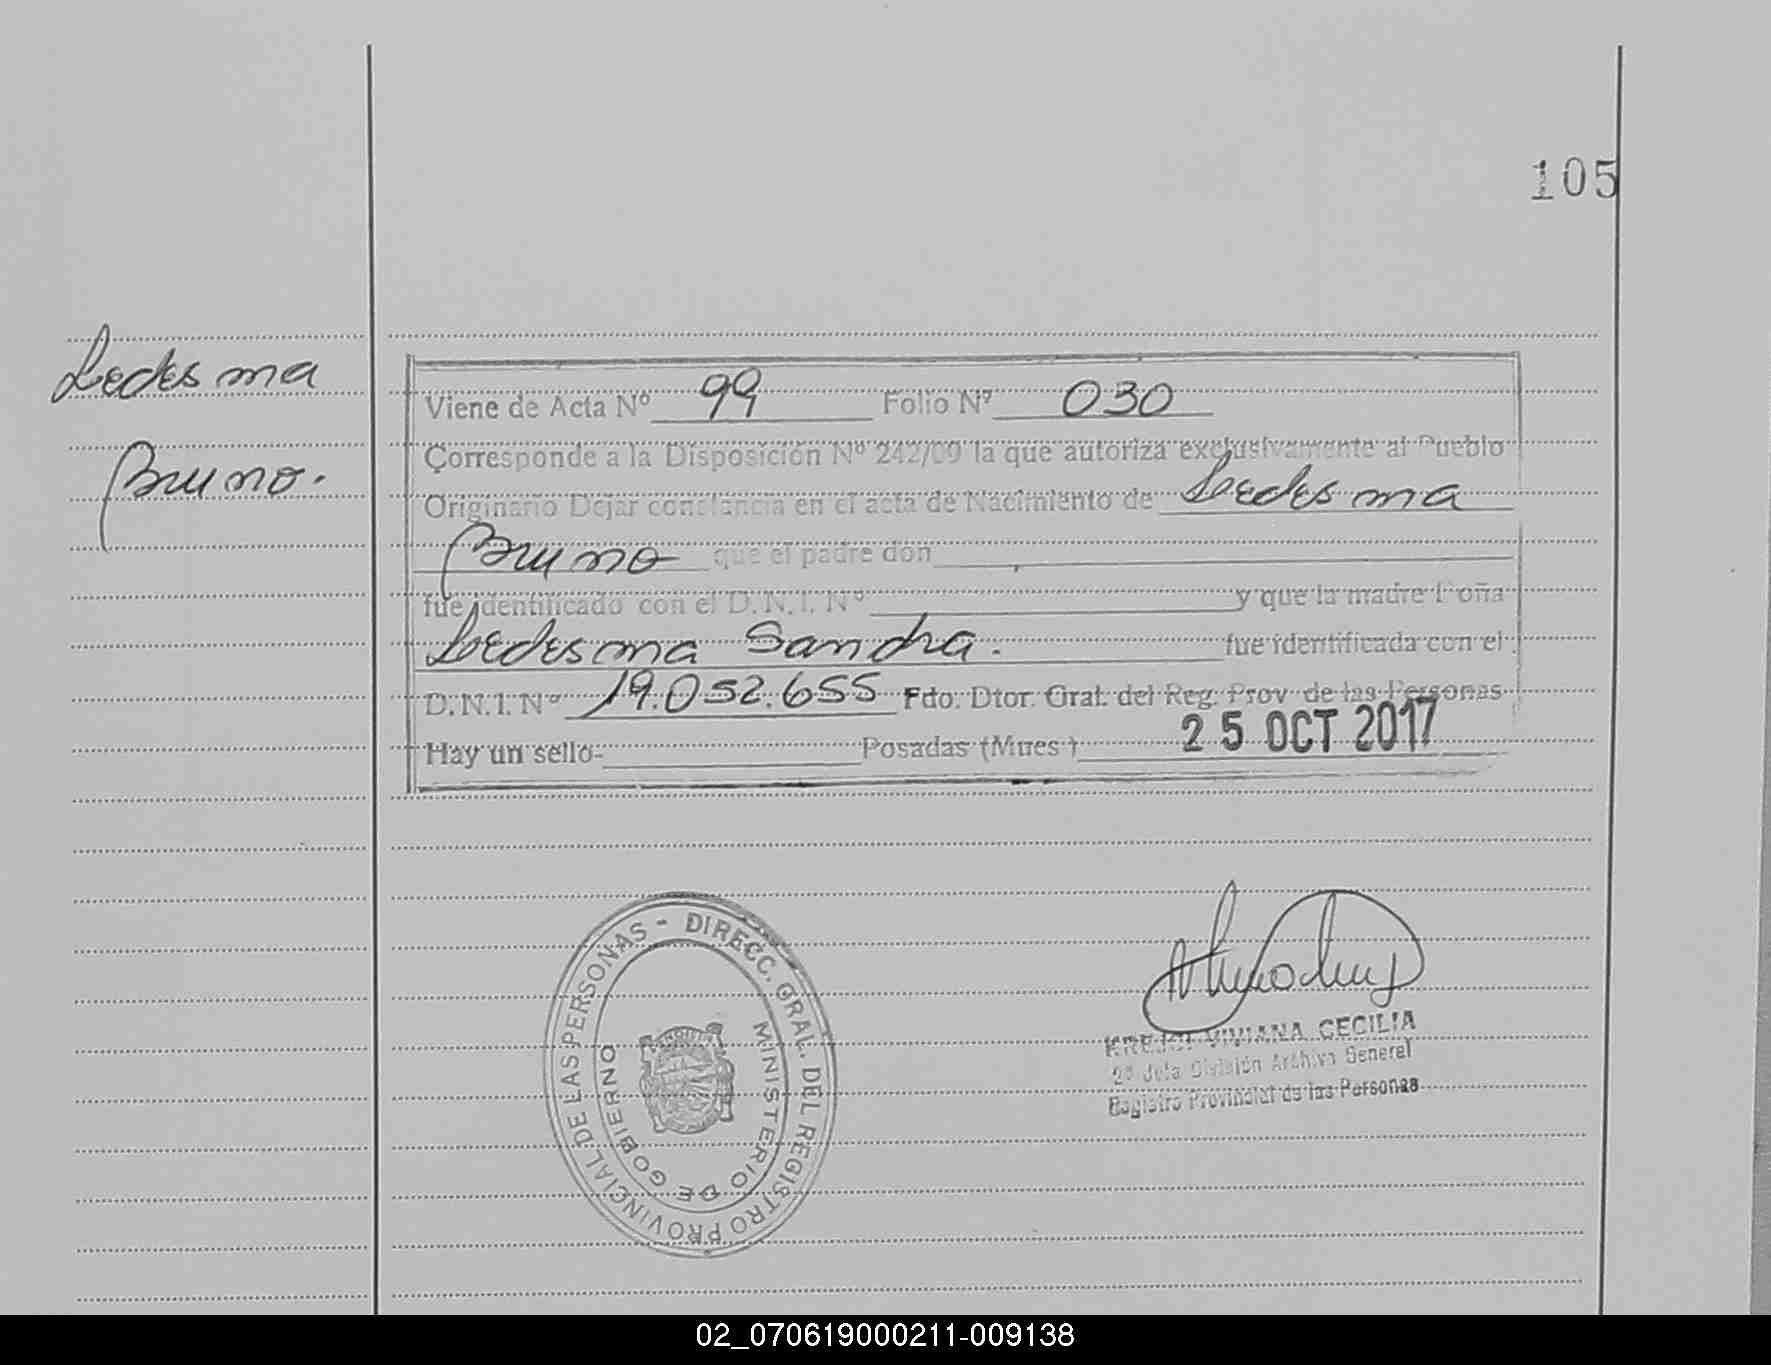 105
Ledesma
Bruno.
Viene de Acta Nº 99 Folio Nº 030
Corresponde a la Disposición Nº 242/09 la que autoriza exclusivamente al Pueblo
Originario Dejar constancia en el acta de Nacimiento de Ledesma
Bruno que el padre don
fue identificado con el D.N.I. Nº y que la madre Doña
Ledesma Sandra. fue identificada con el
D.N.I. Nº 19.052.655 Fdo: Dtor. Gral. del Reg. Prov de las Personas
Hay un sello- Posadas (Mnes) 25 OCT 2017
DIRECC. GRAL. DEL REGISTRO PROVINCIAL DE LAS PERSONAS -
MINISTERIO DE GOBIERNO
VIVIANA CECILIA
División Archivo General
Registro Provincial de las Personas
02_070619000211-009138